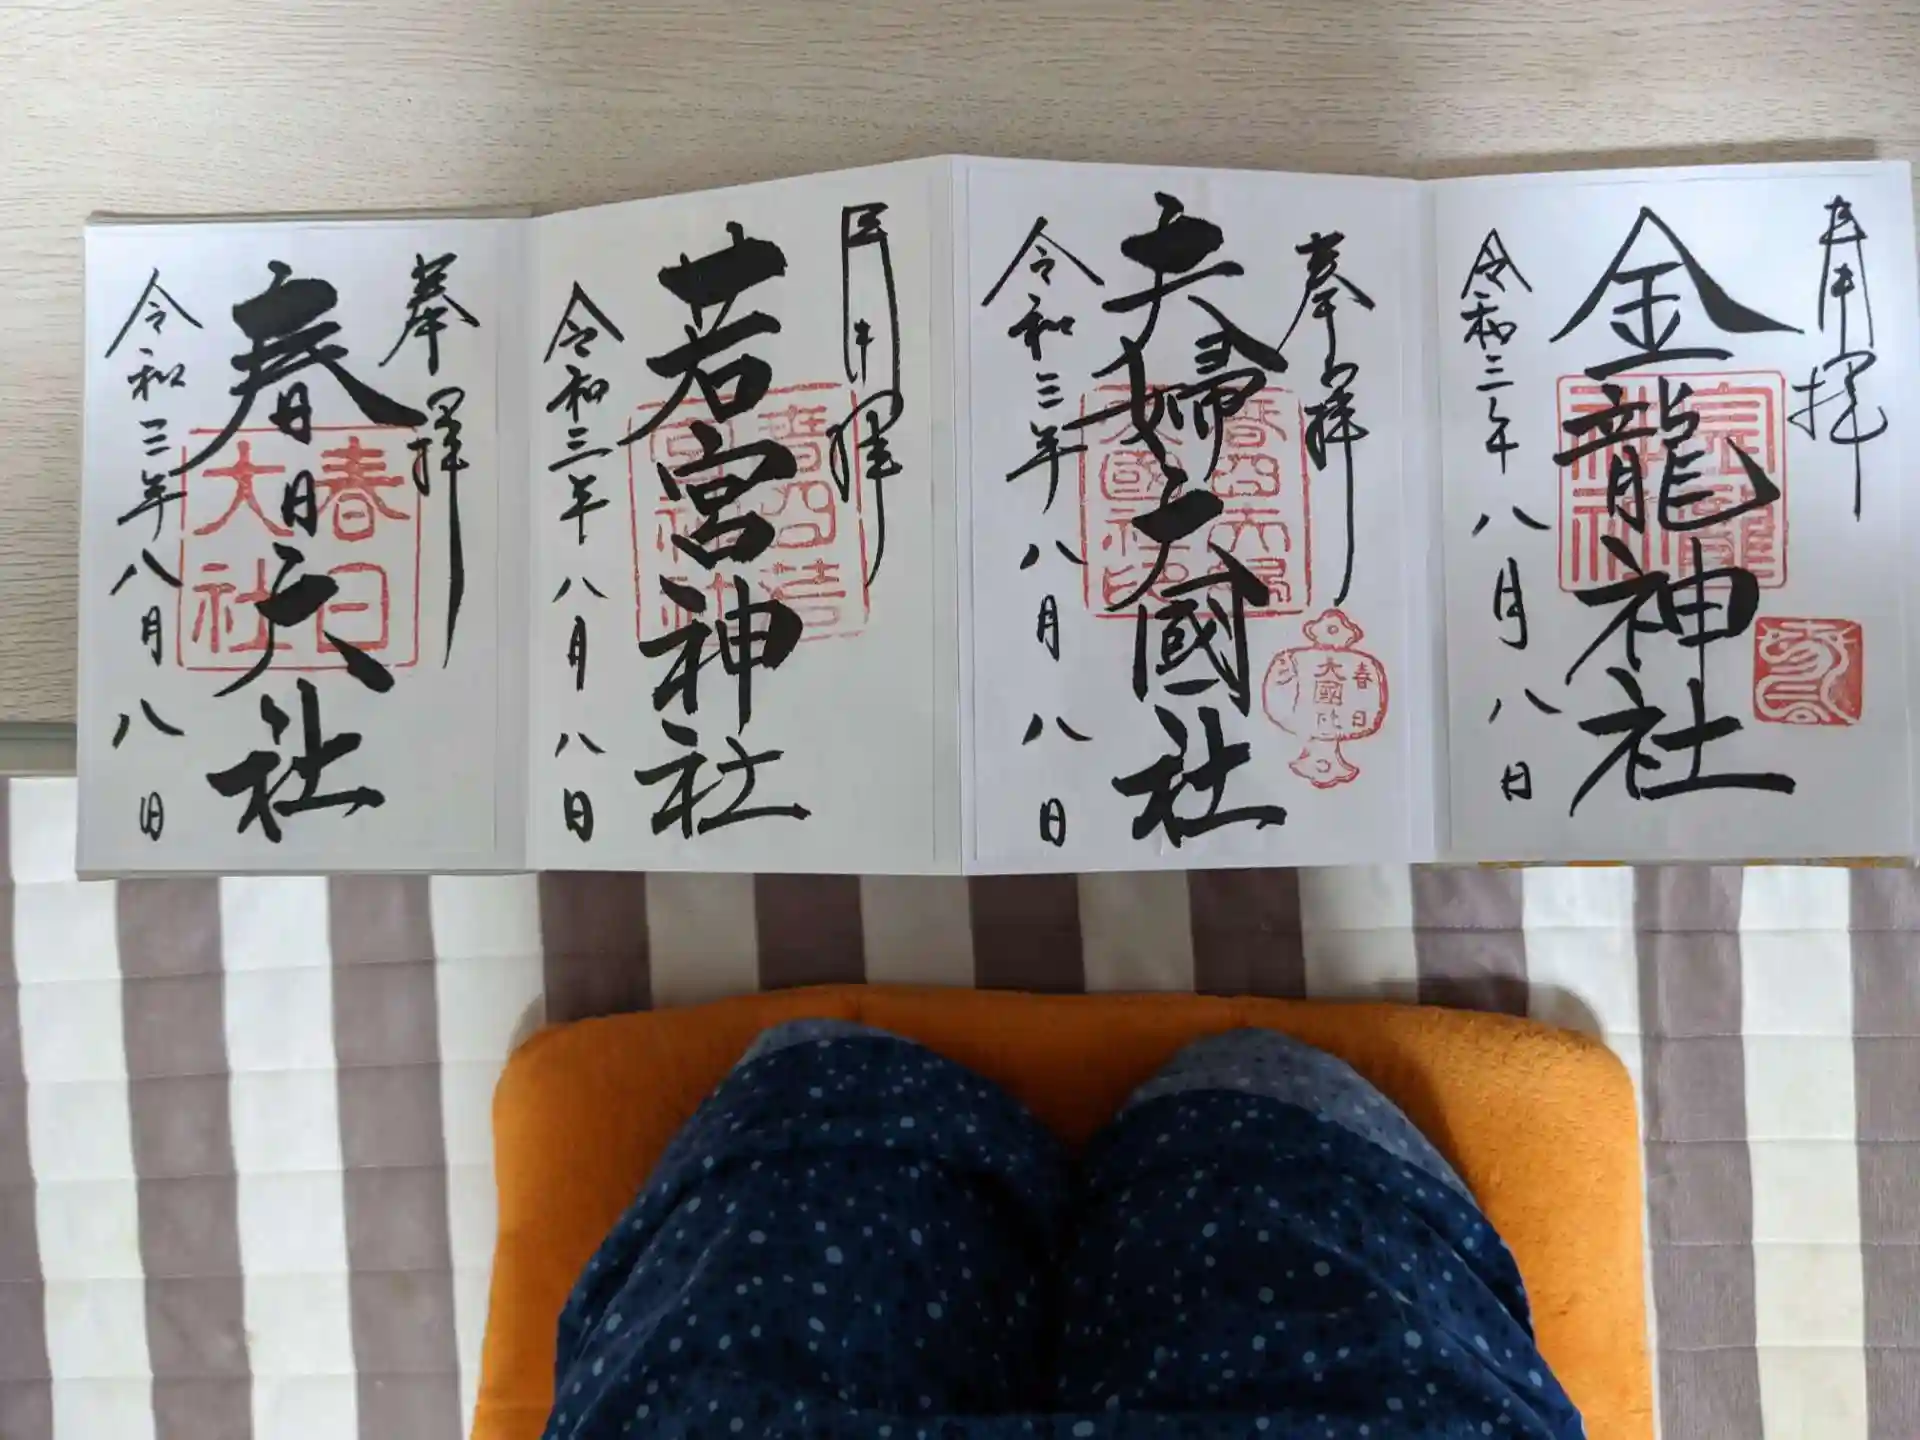 奉拝
春日大社
令和三年八月八日
春日
大社
奉拝
若宮神社
令和三年八月八日
奉拝
夫婦大國社
令和三年八月八日
春日
大國社
奉拝
金龍神社
令和三年八月八日